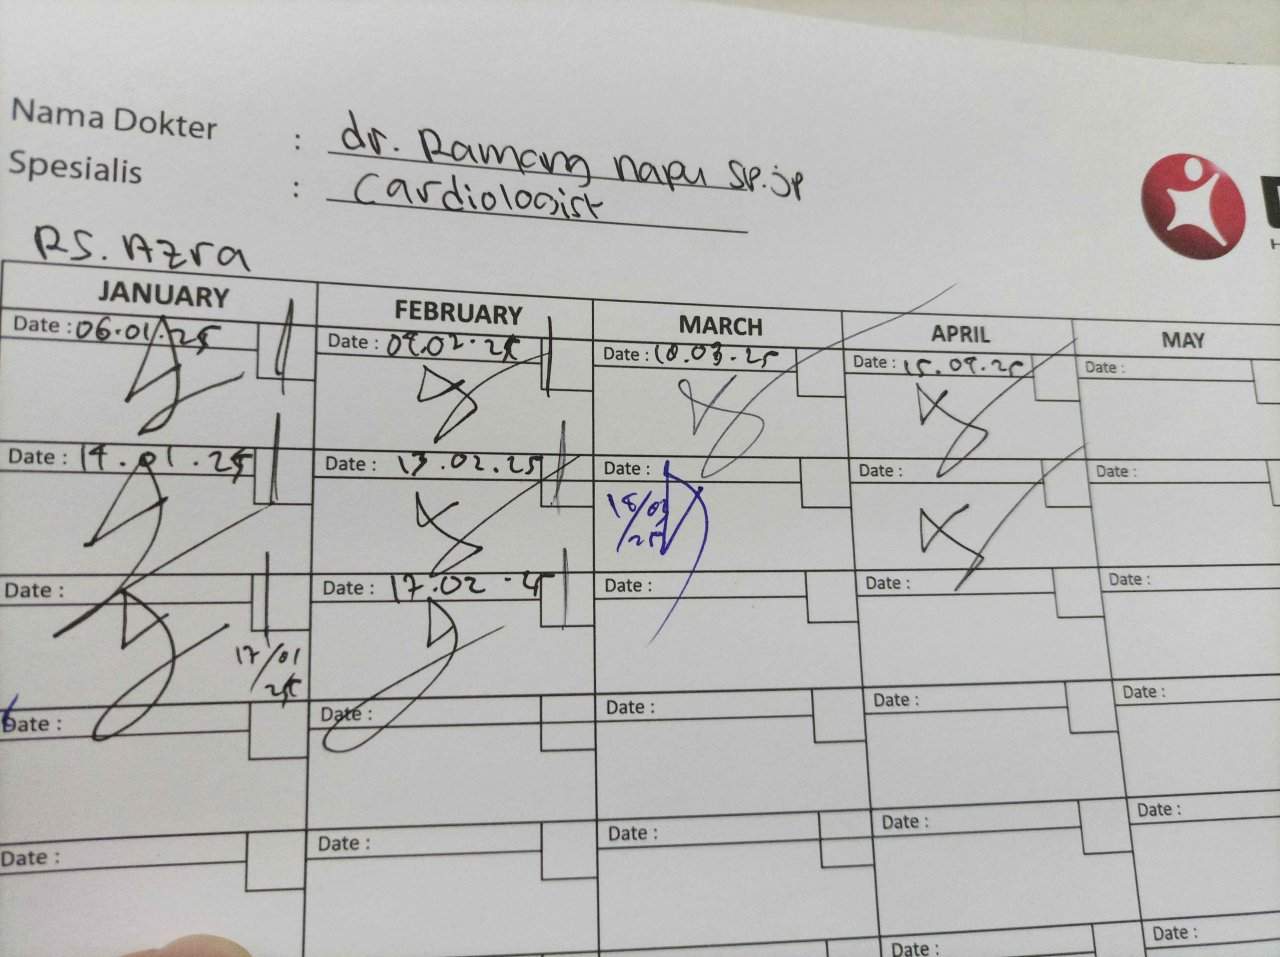 Nama Dokter : dr. Ramang Napu Sp.jp
Spesialis : Cardiologist
RS. Azra
JANUARY FEBRUARY MARCH APRIL MAY
Date : 06.01.25 Date : 02.25 Date : 10.03.25 Date : 15.04.25 Date :
Date : 14.01.25 Date : 13.02.25 Date : Date : Date :
18/03
/25
Date : Date : 17.02.25 Date : Date : Date :
17/01
25
Date : Date : Date : Date : Date :
Date : Date : Date : Date : Date :
Date : Date :